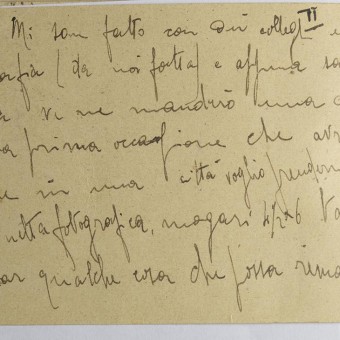 II
Mi son fatto con dei colleghi e
afia (da noi fatta) e appena sa
a ve ne manderò una
a prima occasione che avr
e in una città voglio prender
netta fotografica, magari 4½x6
ar qualche cosa che possa rima